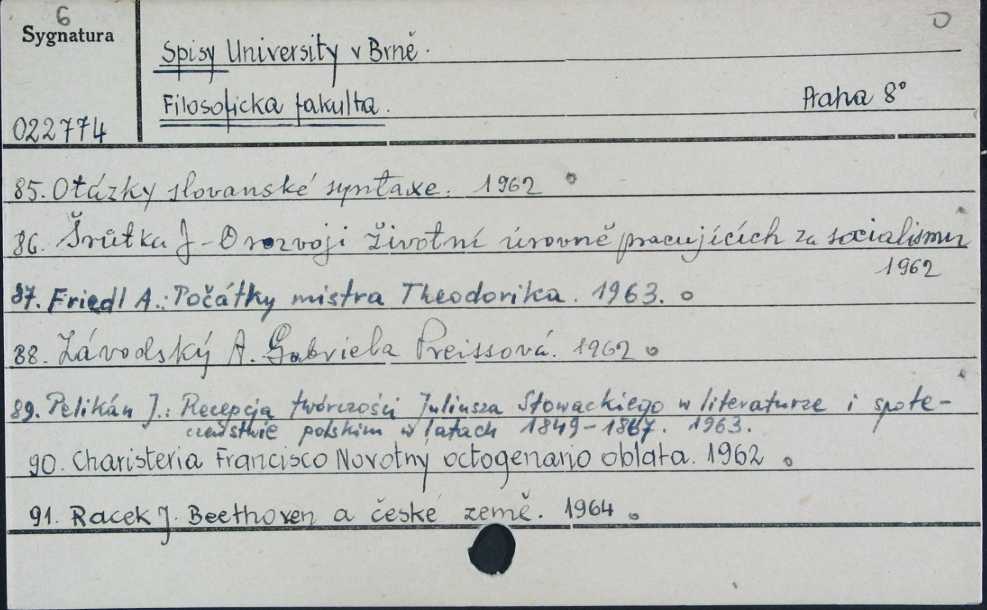 6
Sygnatura
Spisy University v Brně.
Filosofická fakulta.
Praha 8°
022774
85. Otázky slovanské syntaxe. 1962
86. Šrůtka J - O rozvoji životní úrovně pracujících za socialismu
1962
87. Friedl A.: Počátky mistra Theodorika. 1963.
88. Závodský A. Gabriela Preissová. 1962
89. Pelikán J.: Recepcja twórczości Juliusza Słowackiego w literaturze i społe-
czeństwie polskim w latach 1849-1867. 1963.
90. Charisteria Francisco Novotny octogenario oblata. 1962
91. Racek J. Beethoven a české země. 1964